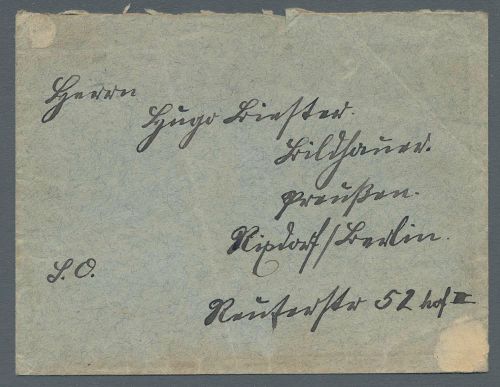 Herrn
Hugo Biester.
Bildhauer.
Preußen.
Rixdorf/Berlin.
S. O.
Reuterstr 52 Hof III